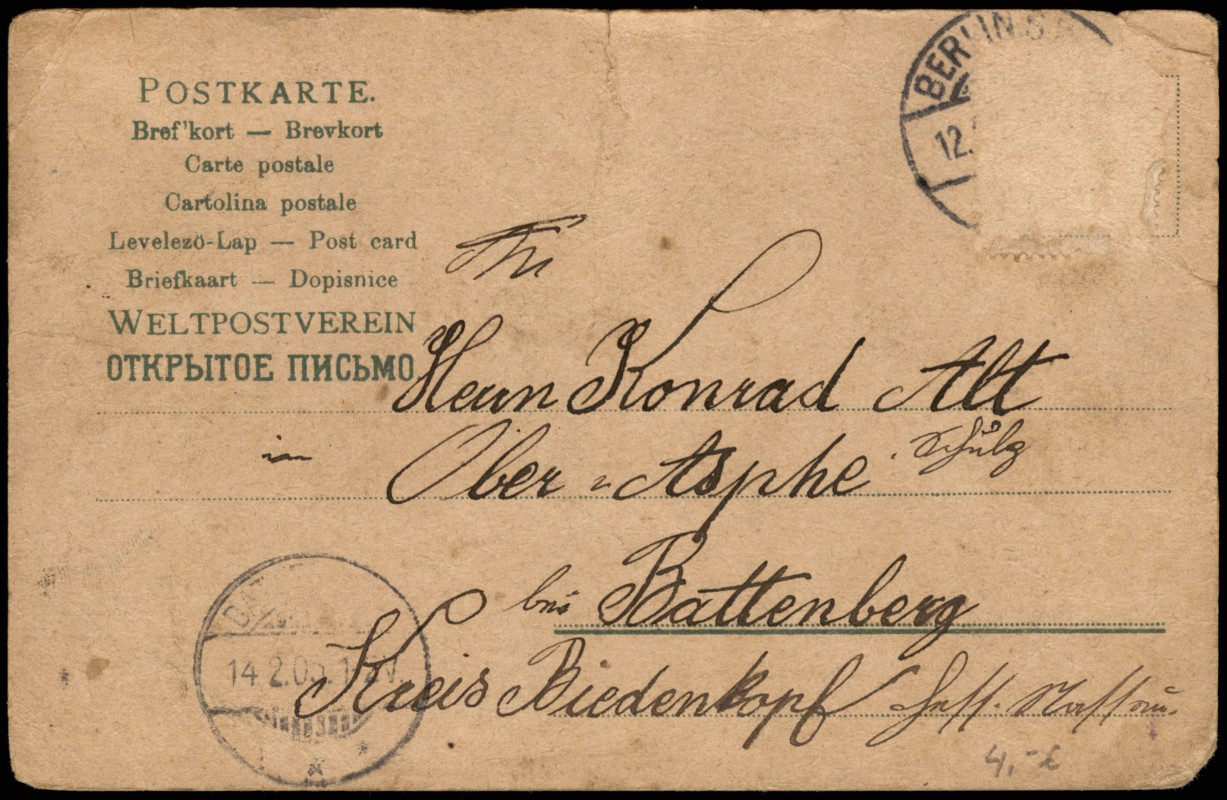 POSTKARTE.
Bref'kort — Brevkort
Carte postale
Cartolina postale
Levelező-Lap — Post card
Briefkaart — Dopisnice
WELTPOSTVEREIN
ОТКРЫТОЕ ПИСЬМО
BERLIN.S.
12.
An
Herrn Konrad Alt
Schulz
in Ober-Asphe
bei Battenberg
Kreis Biedenkopf Hess. Nassau.
14.2.0
4,- €